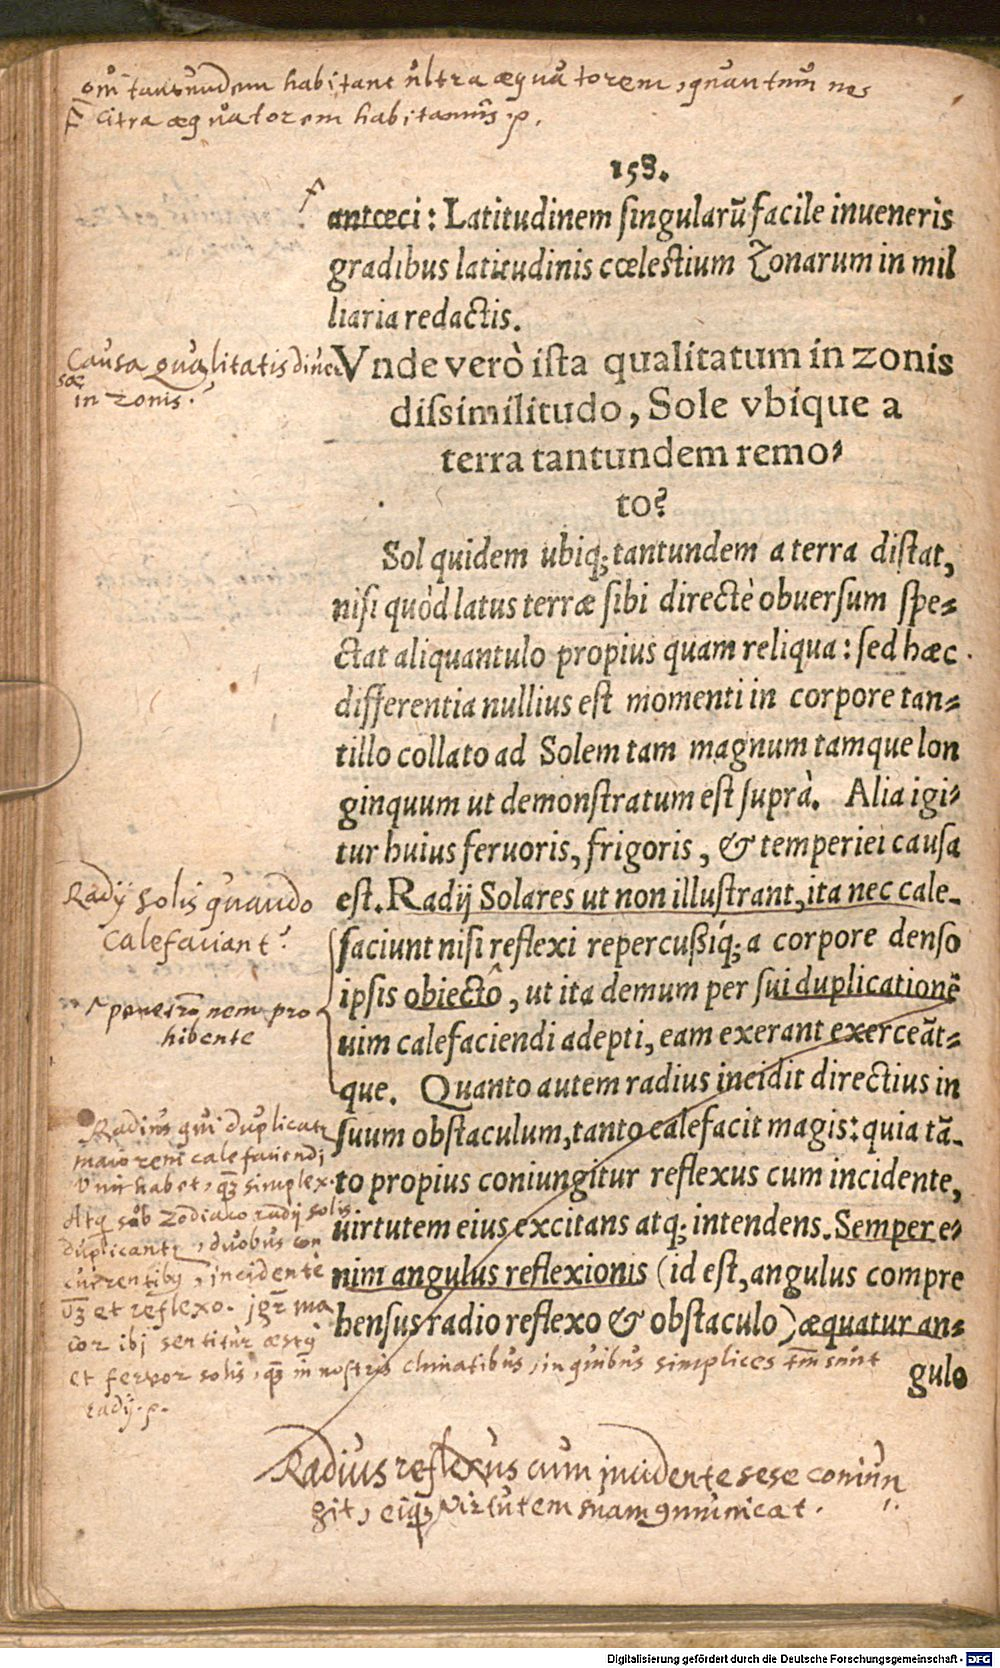 om̄ tantundem habitant ultra æquatorem, quantum nos
citra æquatorem habitamus. p.
158.
antœci: Latitudinem singularū facile inueneris
gradibus latitudinis cœlestium Zonarum in mil
liaria redactis.
Causa qualitatis diuer
sæ
in zonis.
Vnde verò ista qualitatum in zonis
dissimilitudo, Sole vbique a
terra tantundem remo-
to?
Sol quidem ubiq; tantundem a terra distat,
nisi quòd latus terræ sibi directè obuersum spe-
ctat aliquantulo propius quam reliqua: sed hæc
differentia nullius est momenti in corpore tan-
tillo collato ad Solem tam magnum tamque lon
ginquum ut demonstratum est suprà. Alia igi-
tur huius feruoris, frigoris, & temperiei causa
est. Radij Solares ut non illustrant, ita nec cale-
Radij solis quando
calefaciant?
faciunt nisi reflexi repercußiq́; a corpore denso
ipsis obiecto, ut ita demum per sui duplicationē
penetrōnem pro
hibente
uim calefaciendi adepti, eam exerant exerceāt-
que. Quanto autem radius incidit directius in
suum obstaculum, tanto calefacit magis: quia tā-
to propius coniungitur reflexus cum incidente,
uirtutem eius excitans atq; intendens. Semper e-
nim angulus reflexionis (id est, angulus compre
hensus radio reflexo & obstaculo) æquatur an-
gulo
Radius qui duplicatr
maiorem calefaciendj
vim habet, qz simplex.
Atq sub zodiaco radij solis
duplicantr, duobus con
currentibq, incidente
vz et reflexo. jgr ma
ior ibj sentitur æstq
et fervor solis, qz in nostris climatibus, in quibus simplices tm̄ sunt
radij. p.
Radius reflexus cum jncidente sese coniun
git, eiqz virtutem suam 9municat.
Digitalisierung gefördert durch die Deutsche Forschungsgemeinschaft - DFG